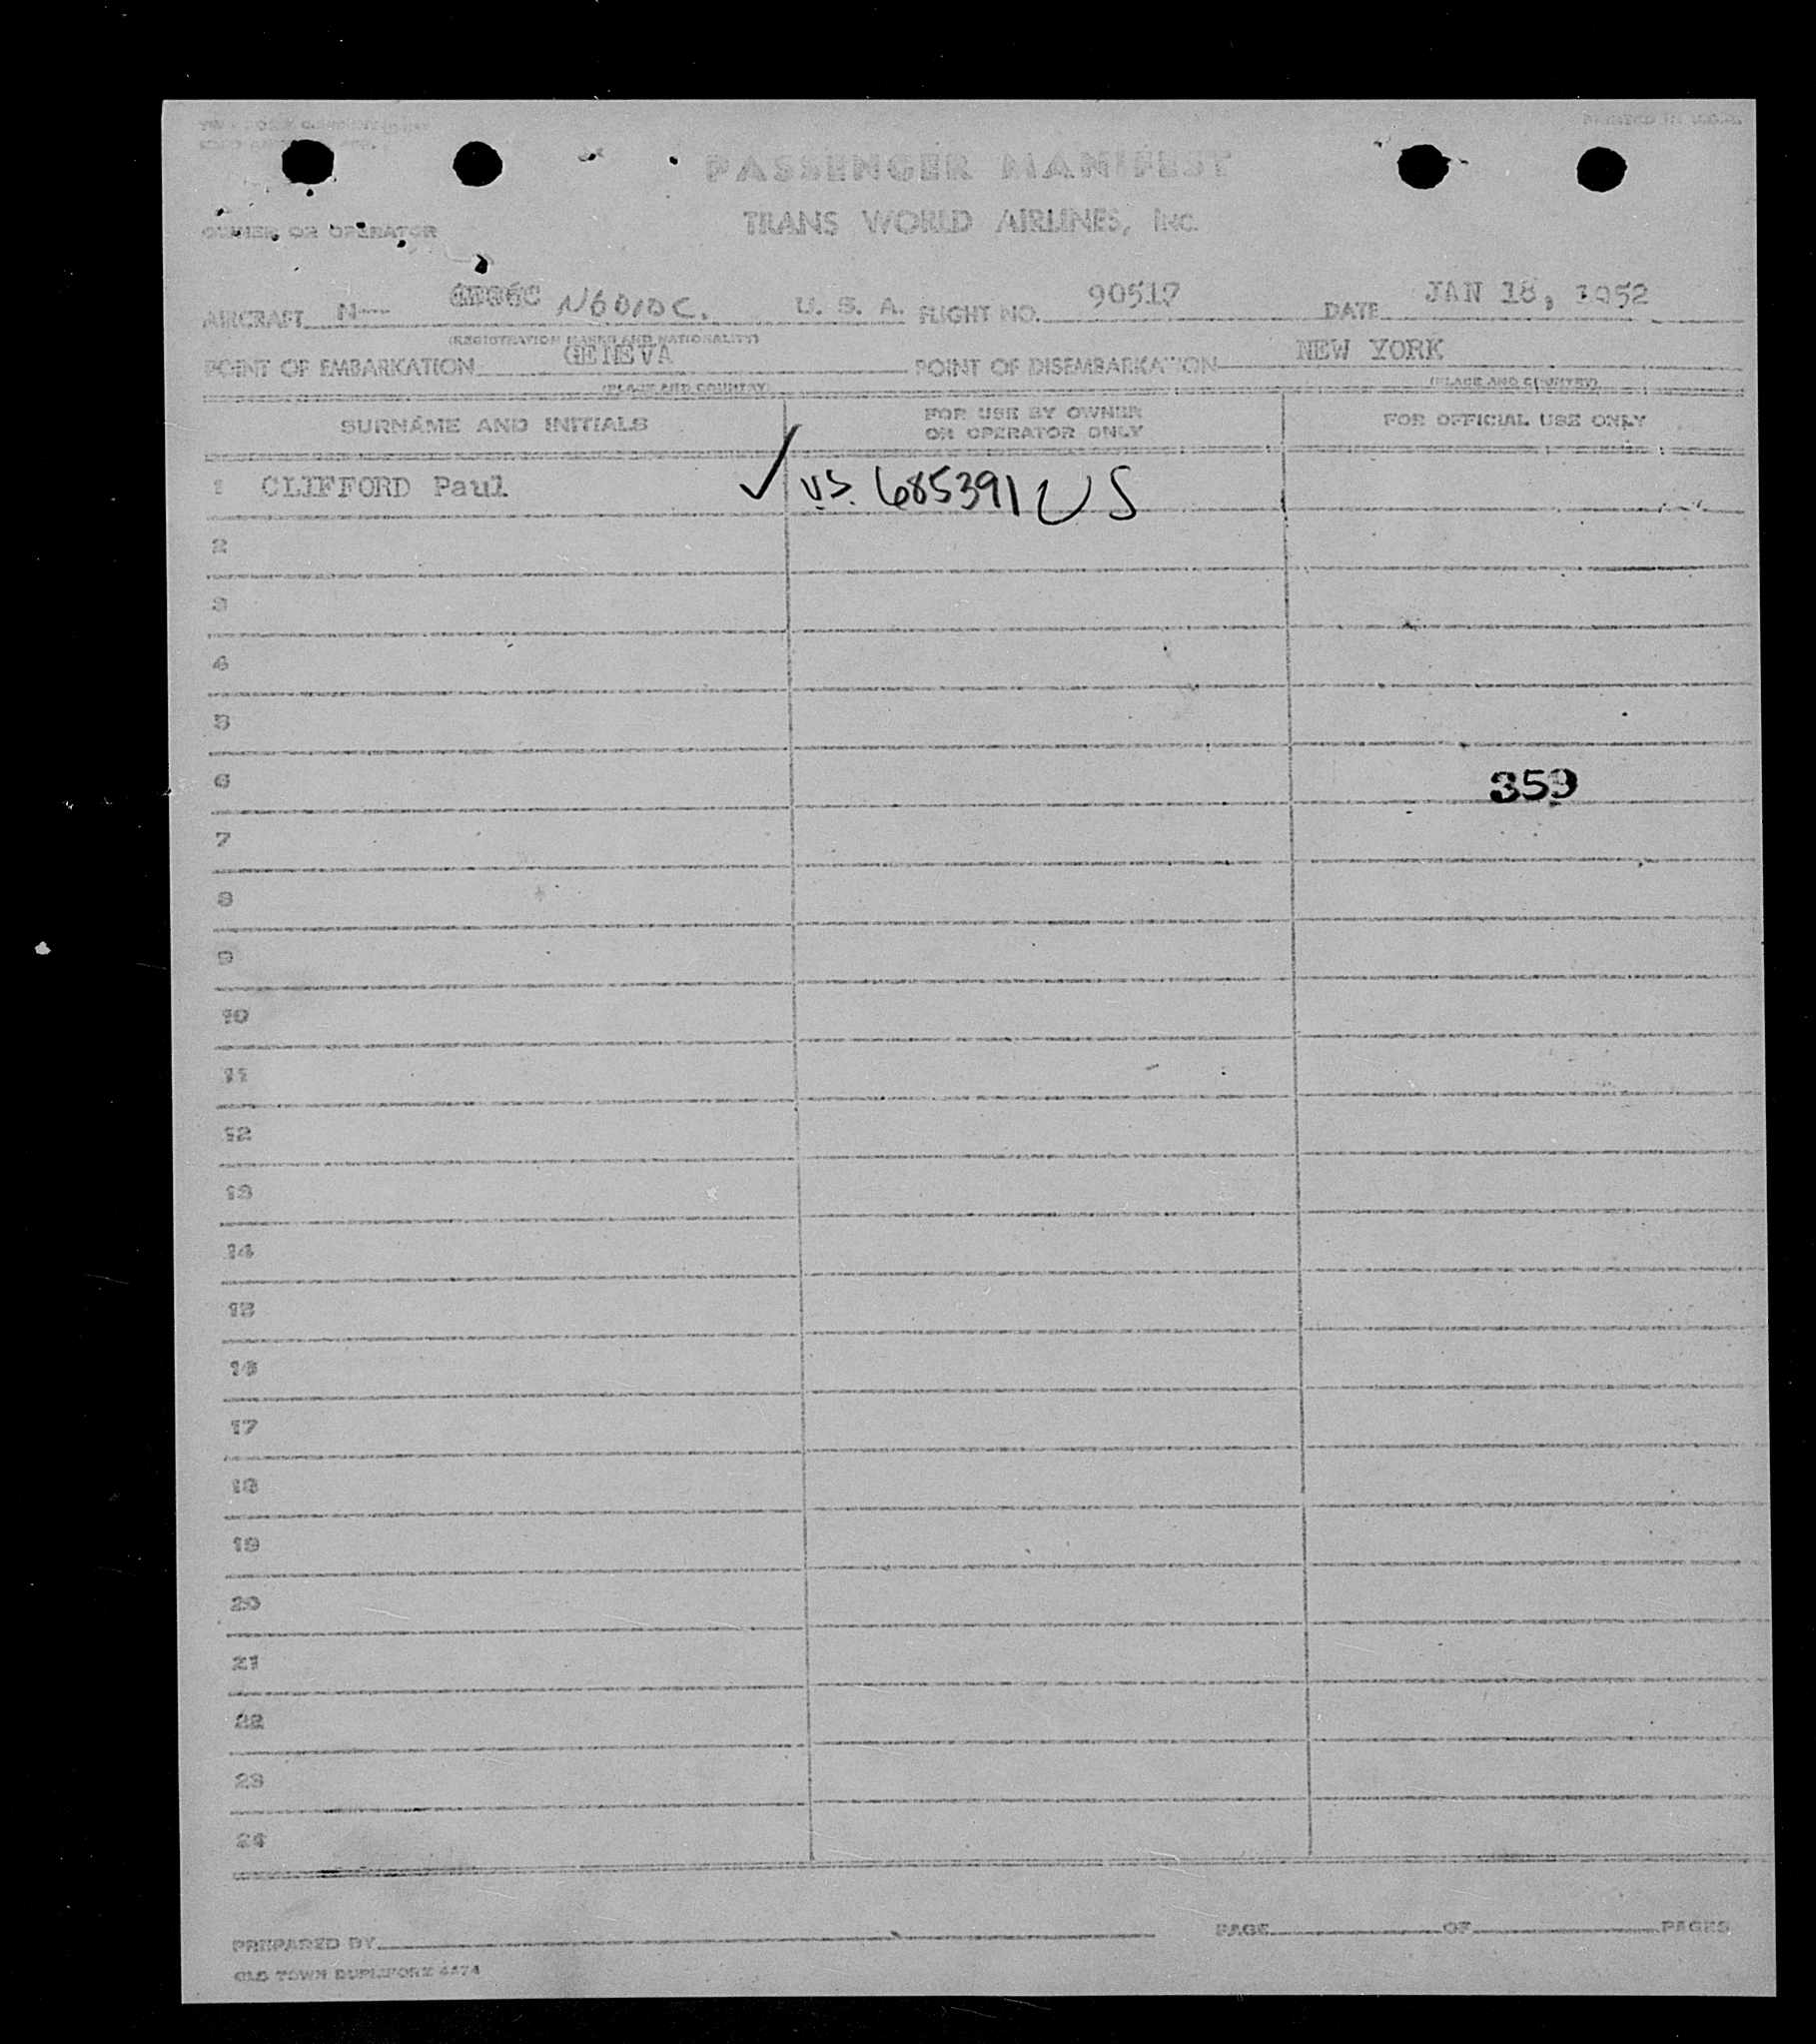 PRINTED IN U.S.A.
PASSENGER MANIFEST
TRANS WORLD AIRLINES, INC.
OWNER OR OPERATOR
AIRCRAFT N— N6010C. U. S. A. FLIGHT NO. 90517 DATE JAN 18, 1952
(REGISTRATION MARKS AND NATIONALITY)
POINT OF EMBARKATION GENEVA POINT OF DISEMBARKATION NEW YORK
(PLACE AND COUNTRY) (PLACE AND COUNTRY)
SURNAME AND INITIALS FOR USE BY OWNER OR OPERATOR ONLY FOR OFFICIAL USE ONLY
1 CLIFFORD Paul ✓ U.S. 685391 US
2
3
4
5
6 359
7
8
9
10
11
12
13
14
15
16
17
18
19
20
21
22
23
24
PREPARED BY PAGE OF PAGES
OLD TOWN